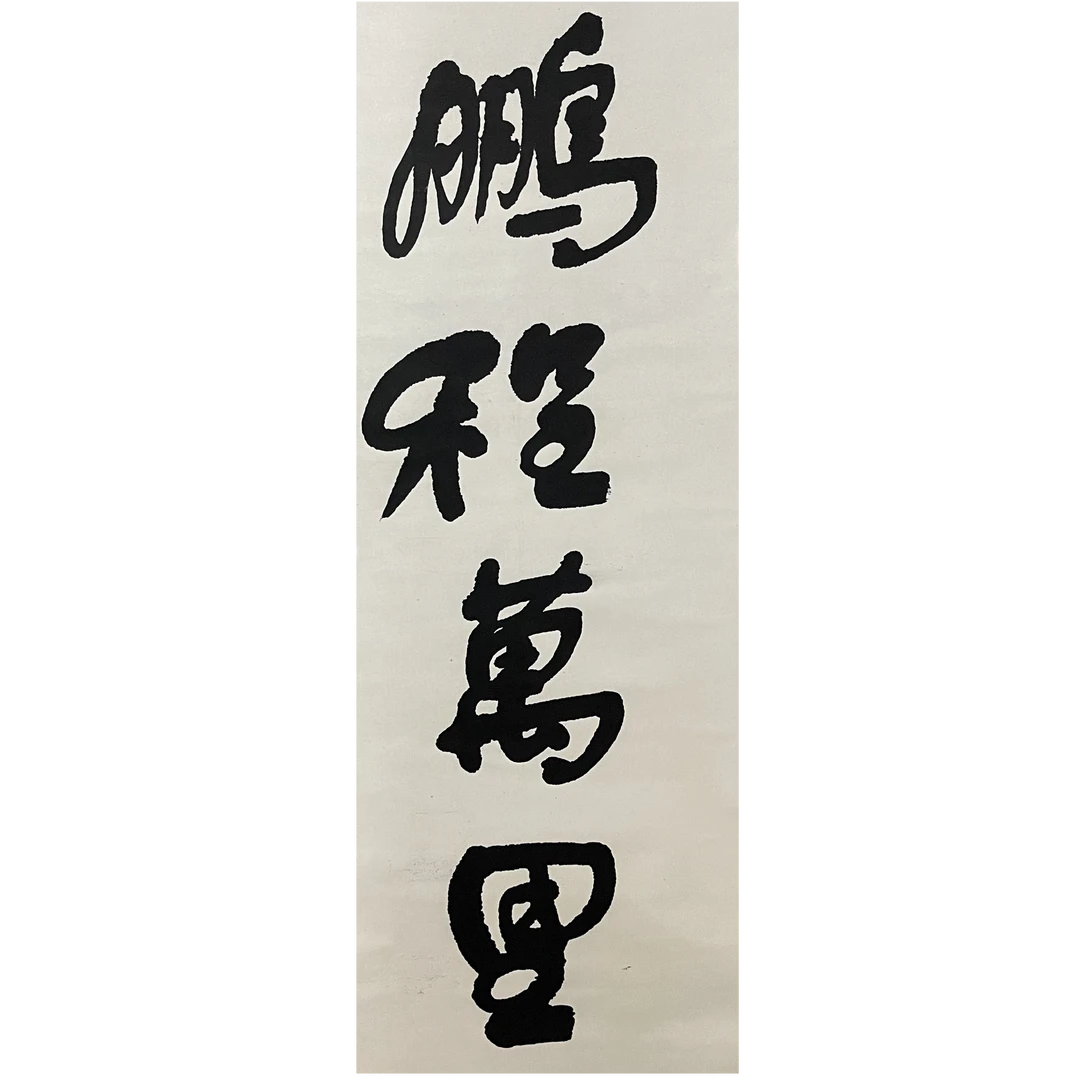 鵬程萬里